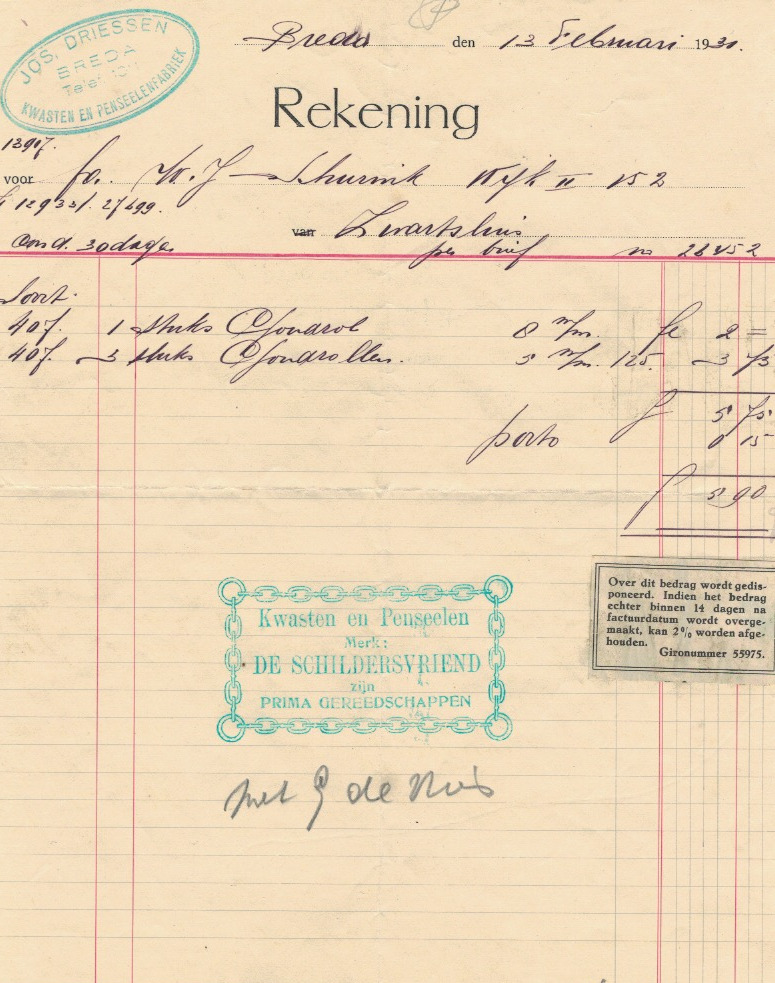 JOS. DRIESSEN
BREDA
Telef.
KWASTEN EN PENSEELENFABRIEK
Breda den 13 Februari 1931.
Rekening
1390f.
voor fa. W. J. Schurink Wijk II 152
van Zwartsluis
cond. 30 dagen per brief no 28452
Soort.
407. 1 stuks 8 m/m. fe 2 =
407. 3 stuks 5 m/m. 125. 3 75
f 5 75
porto 0 15
f 5 90
Over dit bedrag wordt gedis-
poneerd. Indien het bedrag
echter binnen 14 dagen na
factuurdatum wordt overge-
maakt, kan 2% worden afge-
houden.
Gironummer 55975.
Kwasten en Penseelen
Merk:
DE SCHILDERSVRIEND
zijn
PRIMA GEREEDSCHAPPEN
de